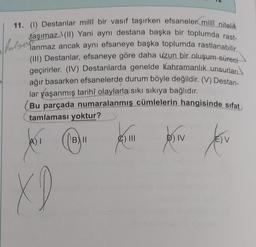 11. (I) Destanlar millî bir vasıf taşırken efsaneler millî nitelik
taşımaz. (II) Yani aynı destana başka bir toplumda rast-
lanmaz ancak aynı efsaneye başka toplumda rastlanabilir.
(III) Destanlar, efsaneye göre daha uzun bir oluşum süreci
geçirirler. (IV) Destanlarda genelde kahramanlık unsurları
ağır basarken efsanelerde durum böyle değildir. (V) Destan-
lar yaşanmış tarihî olaylarla sıkı sıkıya bağlıdır.
Bu parçada numaralanmış cümlelerin hangisinde sıfat
tamlaması yoktur?
A) I B) II C) III D) IV E) V